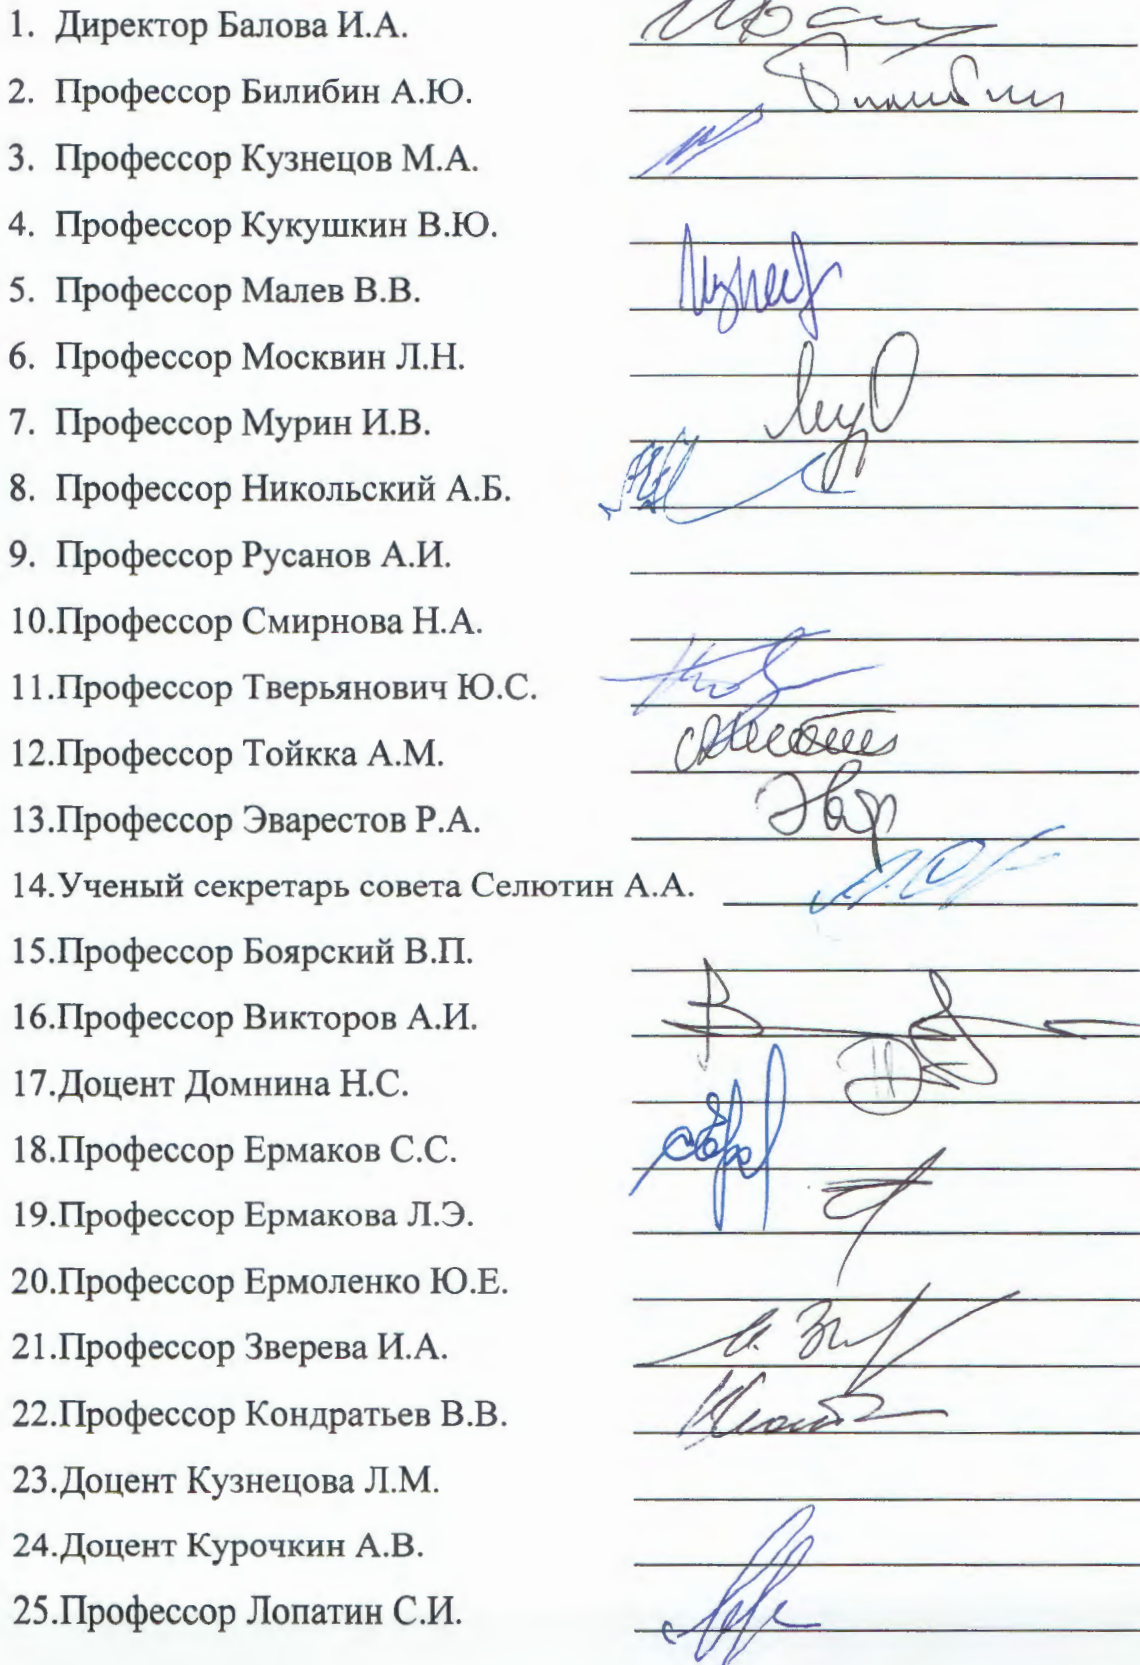 1. Директор Балова И.А.
2. Профессор Билибин А.Ю.
3. Профессор Кузнецов М.А.
4. Профессор Кукушкин В.Ю.
5. Профессор Малев В.В.
6. Профессор Москвин Л.Н.
7. Профессор Мурин И.В.
8. Профессор Никольский А.Б.
9. Профессор Русанов А.И.
10.Профессор Смирнова Н.А.
11.Профессор Тверьянович Ю.С.
12.Профессор Тойкка А.М.
13.Профессор Эварестов Р.А.
14.Ученый секретарь совета Селютин А.А.
15.Профессор Боярский В.П.
16.Профессор Викторов А.И.
17.Доцент Домнина Н.С.
18.Профессор Ермаков С.С.
19.Профессор Ермакова Л.Э.
20.Профессор Ермоленко Ю.Е.
21.Профессор Зверева И.А.
22.Профессор Кондратьев В.В.
23.Доцент Кузнецова Л.М.
24.Доцент Курочкин А.В.
25.Профессор Лопатин С.И.